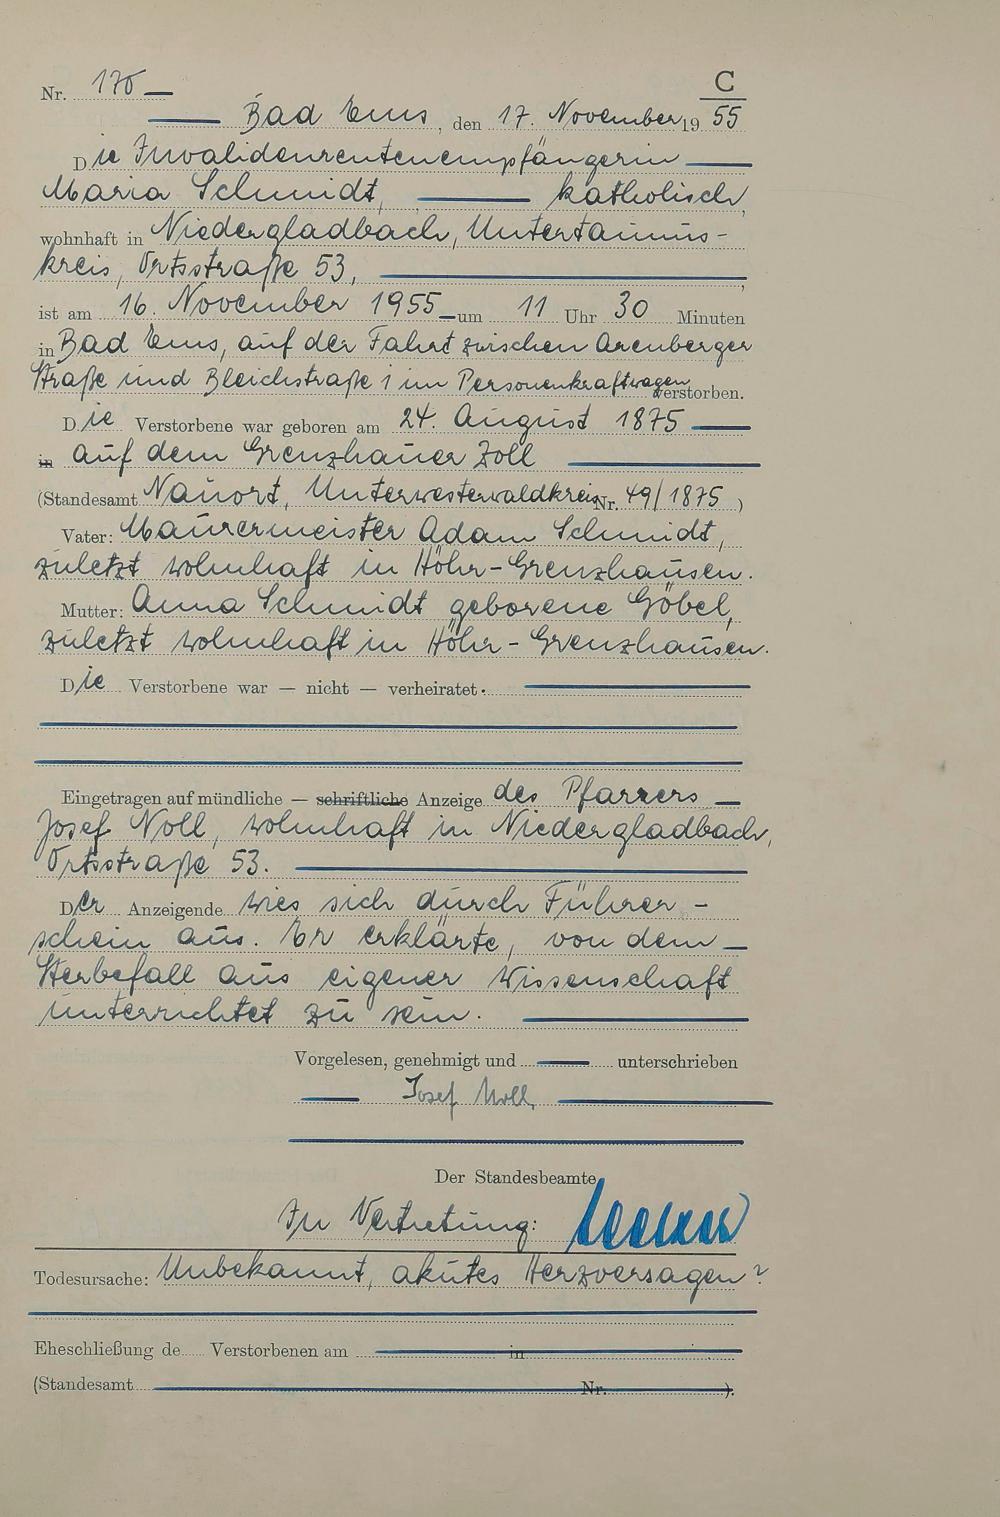 Nr. 176
C
Bad Ems, den 17. November 19 55
Die Invalidenrentenempfängerin
Maria Schmidt, katholisch,
wohnhaft in Niedergladbach, Untertaunus-
kreis, Ortsstraße 53,
ist am 16. November 1955 um 11 Uhr 30 Minuten
in Bad Ems, auf der Fahrt zwischen Arenberger
Straße und Bleichstraße 1 im Personenkraftwagen verstorben.
Die Verstorbene war geboren am 24. August 1875
in auf dem Grenzhauer Zoll
(Standesamt Nauort, Unterwesterwaldkreis Nr. 49/1875)
Vater: Maurermeister Adam Schmidt,
zuletzt wohnhaft in Höhr-Grenzhausen.
Mutter: Anna Schmidt geborene Göbel,
zuletzt wohnhaft in Höhr-Grenzhausen.
Die Verstorbene war — nicht — verheiratet.
Eingetragen auf mündliche — schriftliche Anzeige des Pfarrers
Josef Noll, wohnhaft in Niedergladbach,
Ortsstraße 53.
Der Anzeigende wies sich durch Führer-
schein aus. Er erklärte, von dem
Sterbefall aus eigener Wissenschaft
unterrichtet zu sein.
Vorgelesen, genehmigt und unterschrieben
Josef Noll
Der Standesbeamte
In Vertretung:
Todesursache: Unbekannt, akutes Herzversagen?
Eheschließung de Verstorbenen am in
(Standesamt Nr. ).